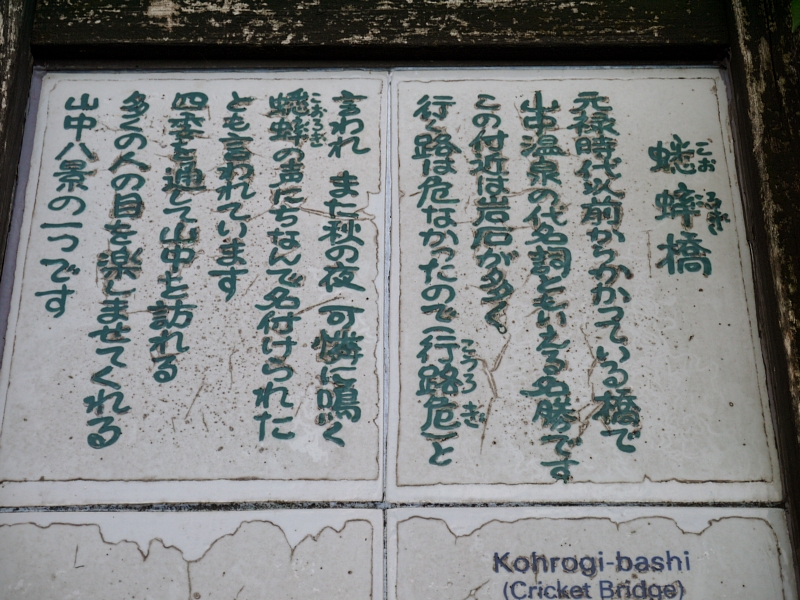 蟋蟀橋
こおろぎ
元禄時代以前からかかっている橋で
山中温泉の代名詞ともいえる名勝です
この付近は岩石が多く、
行く路は危なかったので(行路危)と
こうろぎ
言われ また秋の夜 可憐に鳴く
蟋蟀の声にちなんで名付けられた
こおろぎ
とも言われています
四季を通して山中を訪れる
多くの人の目を楽しませてくれる
山中八景の一つです
Kohrogi-bashi
(Cricket Bridge)